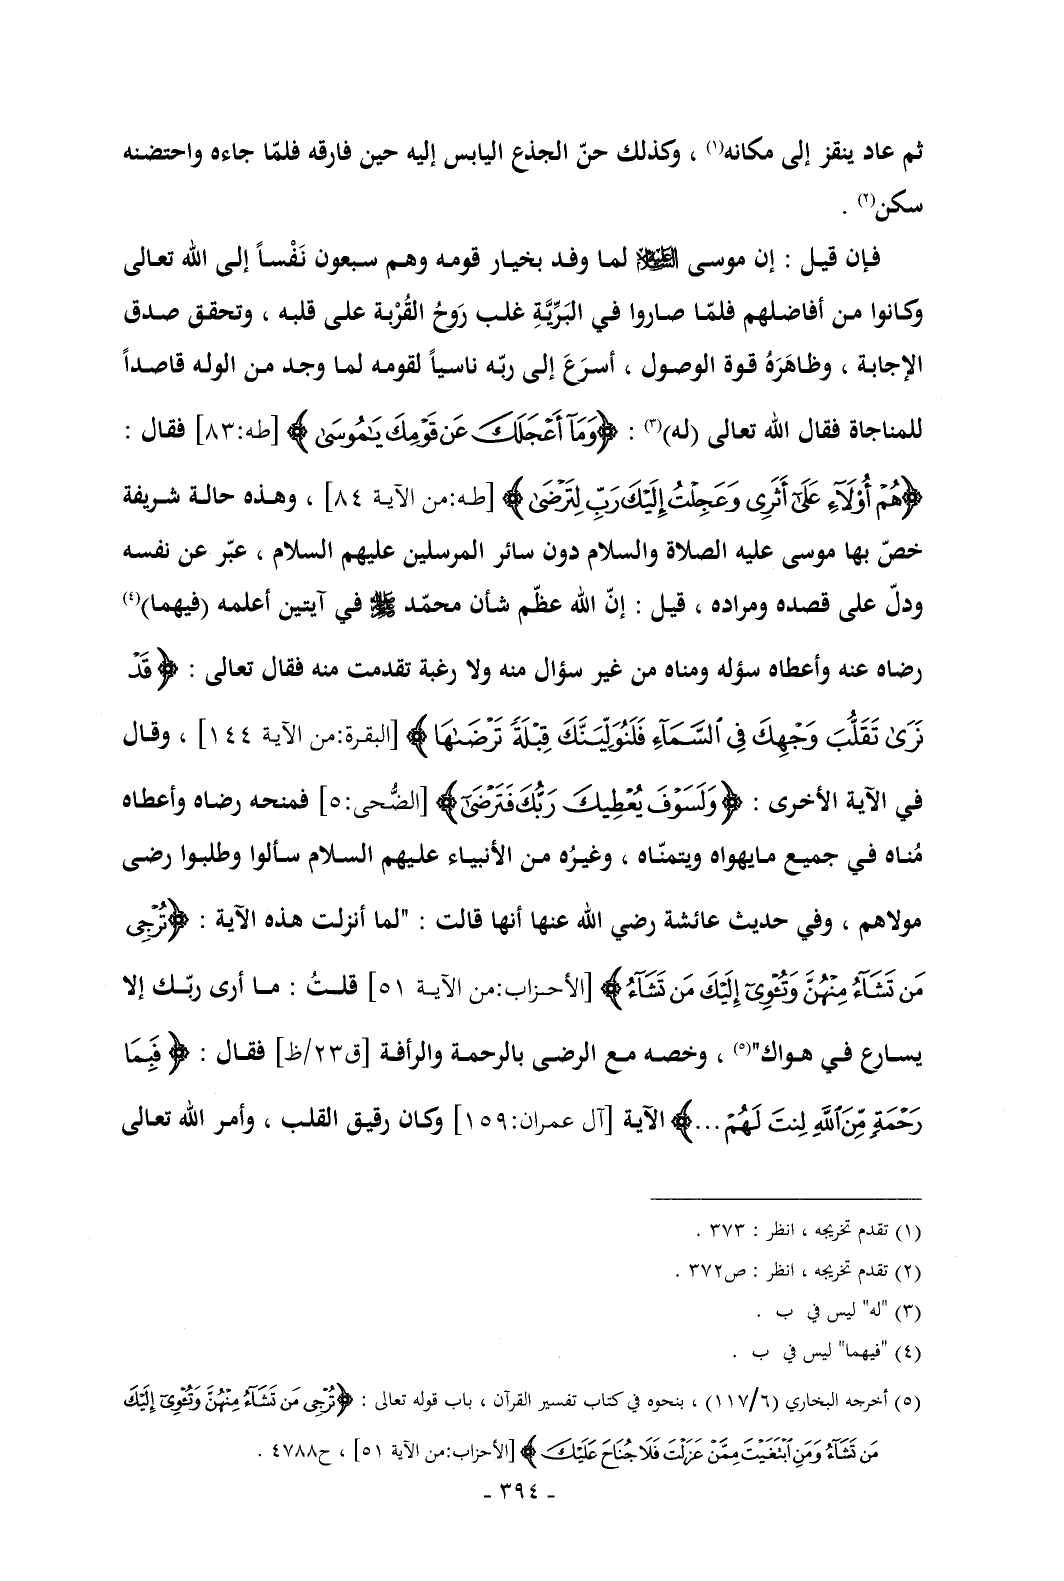 ثم عاد ينقز إلى مكانه(١) ، وكذلك حنّ الجذع اليابس إليه حين فارقه فلمّا جاءه واحتضنه
سكن(٢) .
فإن قيل : إن موسى العليها لما وفد بخيار قومه وهم سبعون نَفْساً إلى الله تعالى
وكانوا من أفاضلهم فلمّا صاروا في البَرِّيَّةِ غلب رَوحُ القُرْبة على قلبه ، وتحقق صدق
الإجابة ، وظاهَرَهُ قوة الوصول ، أسرَعَ إلى ربّه ناسياً لقومه لما وجد من الوله قاصداً
للمناجاة فقال الله تعالى (له)(٣) : ﴿وَمَآ أَعْجَلَكَ عَن قَوْمِكَ يَٰمُوسَىٰ﴾ [طه:٨٣] فقال :
﴿هُمْ أُوْلَآءِ عَلَىٰٓ أَثَرِى وَعَجِلْتُ إِلَيْكَ رَبِّ لِتَرْضَىٰ﴾ [طه:من الآية ٨٤] ، وهذه حالة شريفة
خصّ بها موسى عليه الصلاة والسلام دون سائر المرسلين عليهم السلام ، عبّر عن نفسه
ودلّ على قصده ومراده ، قيل : إنّ الله عظّم شأن محمّد ﷺ في آيتين أعلمه (فيهما)(٤)
رضاه عنه وأعطاه سؤله ومناه من غير سؤال منه ولا رغبة تقدمت منه فقال تعالى : ﴿قَدْ
نَرَىٰ تَقَلُّبَ وَجْهِكَ فِى ٱلسَّمَآءِ فَلَنُوَلِّيَنَّكَ قِبْلَةً تَرْضَىٰهَا﴾ [البقرة:من الآية ١٤٤] ، وقال
في الآية الأخرى : ﴿وَلَسَوْفَ يُعْطِيكَ رَبُّكَ فَتَرْضَىٰٓ﴾ [الضُّحى:٥] فمنحه رضاه وأعطاه
مُناه في جميع مايهواه ويتمنّاه ، وغيرُه من الأنبياء عليهم السلام سألوا وطلبوا رضى
مولاهم ، وفي حديث عائشة رضي الله عنها أنها قالت : "لما أنزلت هذه الآية : ﴿تُرْجِى
مَن تَشَآءُ مِنْهُنَّ وَتُـْٔوِىٓ إِلَيْكَ مَن تَشَآءُ﴾ [الأحزاب:من الآية ٥١] قلتُ : ما أرى ربّك إلا
يسارع في هواك"(٥) ، وخصه مع الرضى بالرحمة والرأفة [ق٢٣/ظ] فقال : ﴿فَبِمَا
رَحْمَةٍ مِّنَ ٱللَّهِ لِنتَ لَهُمْ ...﴾ الآية [آل عمران:١٥٩] وكان رقيق القلب ، وأمر الله تعالى
(١) تقدم تخريجه ، انظر : ٣٧٣ .
(٢) تقدم تخريجه ، انظر : ص٣٧٢ .
(٣) "له" ليس في ب .
(٤) "فيهما" ليس في ب .
(٥) أخرجه البخاري (١١٧/٦) ، بنحوه في كتاب تفسير القرآن ، باب قوله تعالى : ﴿تُرْجِى مَن تَشَآءُ مِنْهُنَّ وَتُـْٔوِىٓ إِلَيْكَ
مَن تَشَآءُ وَمَنِ ٱبْتَغَيْتَ مِمَّنْ عَزَلْتَ فَلَا جُنَاحَ عَلَيْكَ﴾ [الأحزاب:من الآية ٥١] ، ح٤٧٨٨ .
- ٣٩٤ -